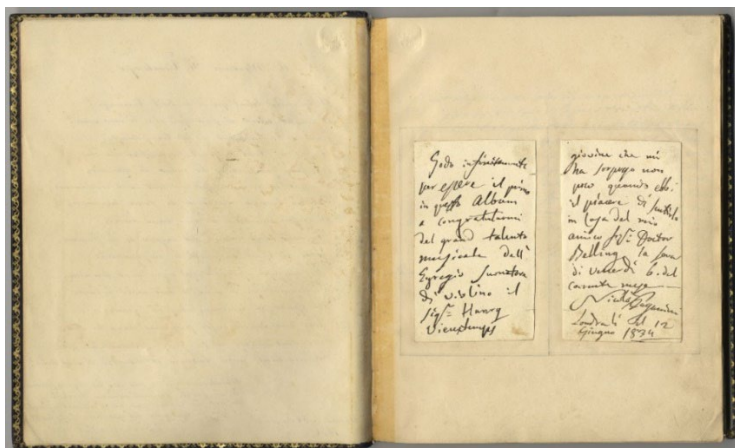 Godo infinitamente
per essere il primo
in questo Album
a congratularmi
del grand talento
musicale dell'
Egregio Suonatore
di violino il
Sigr. Henry
Vieuxtemps
giovine che mi
ha sorpreso non
poco quando ebbi
il piacere di sentirlo
in Casa del mio
amico Sigr. Dottor
Belling la sera
di Venerdi 6. del
corrente mese
Nicolò Paganini
Londra li 12
Giugno 1834